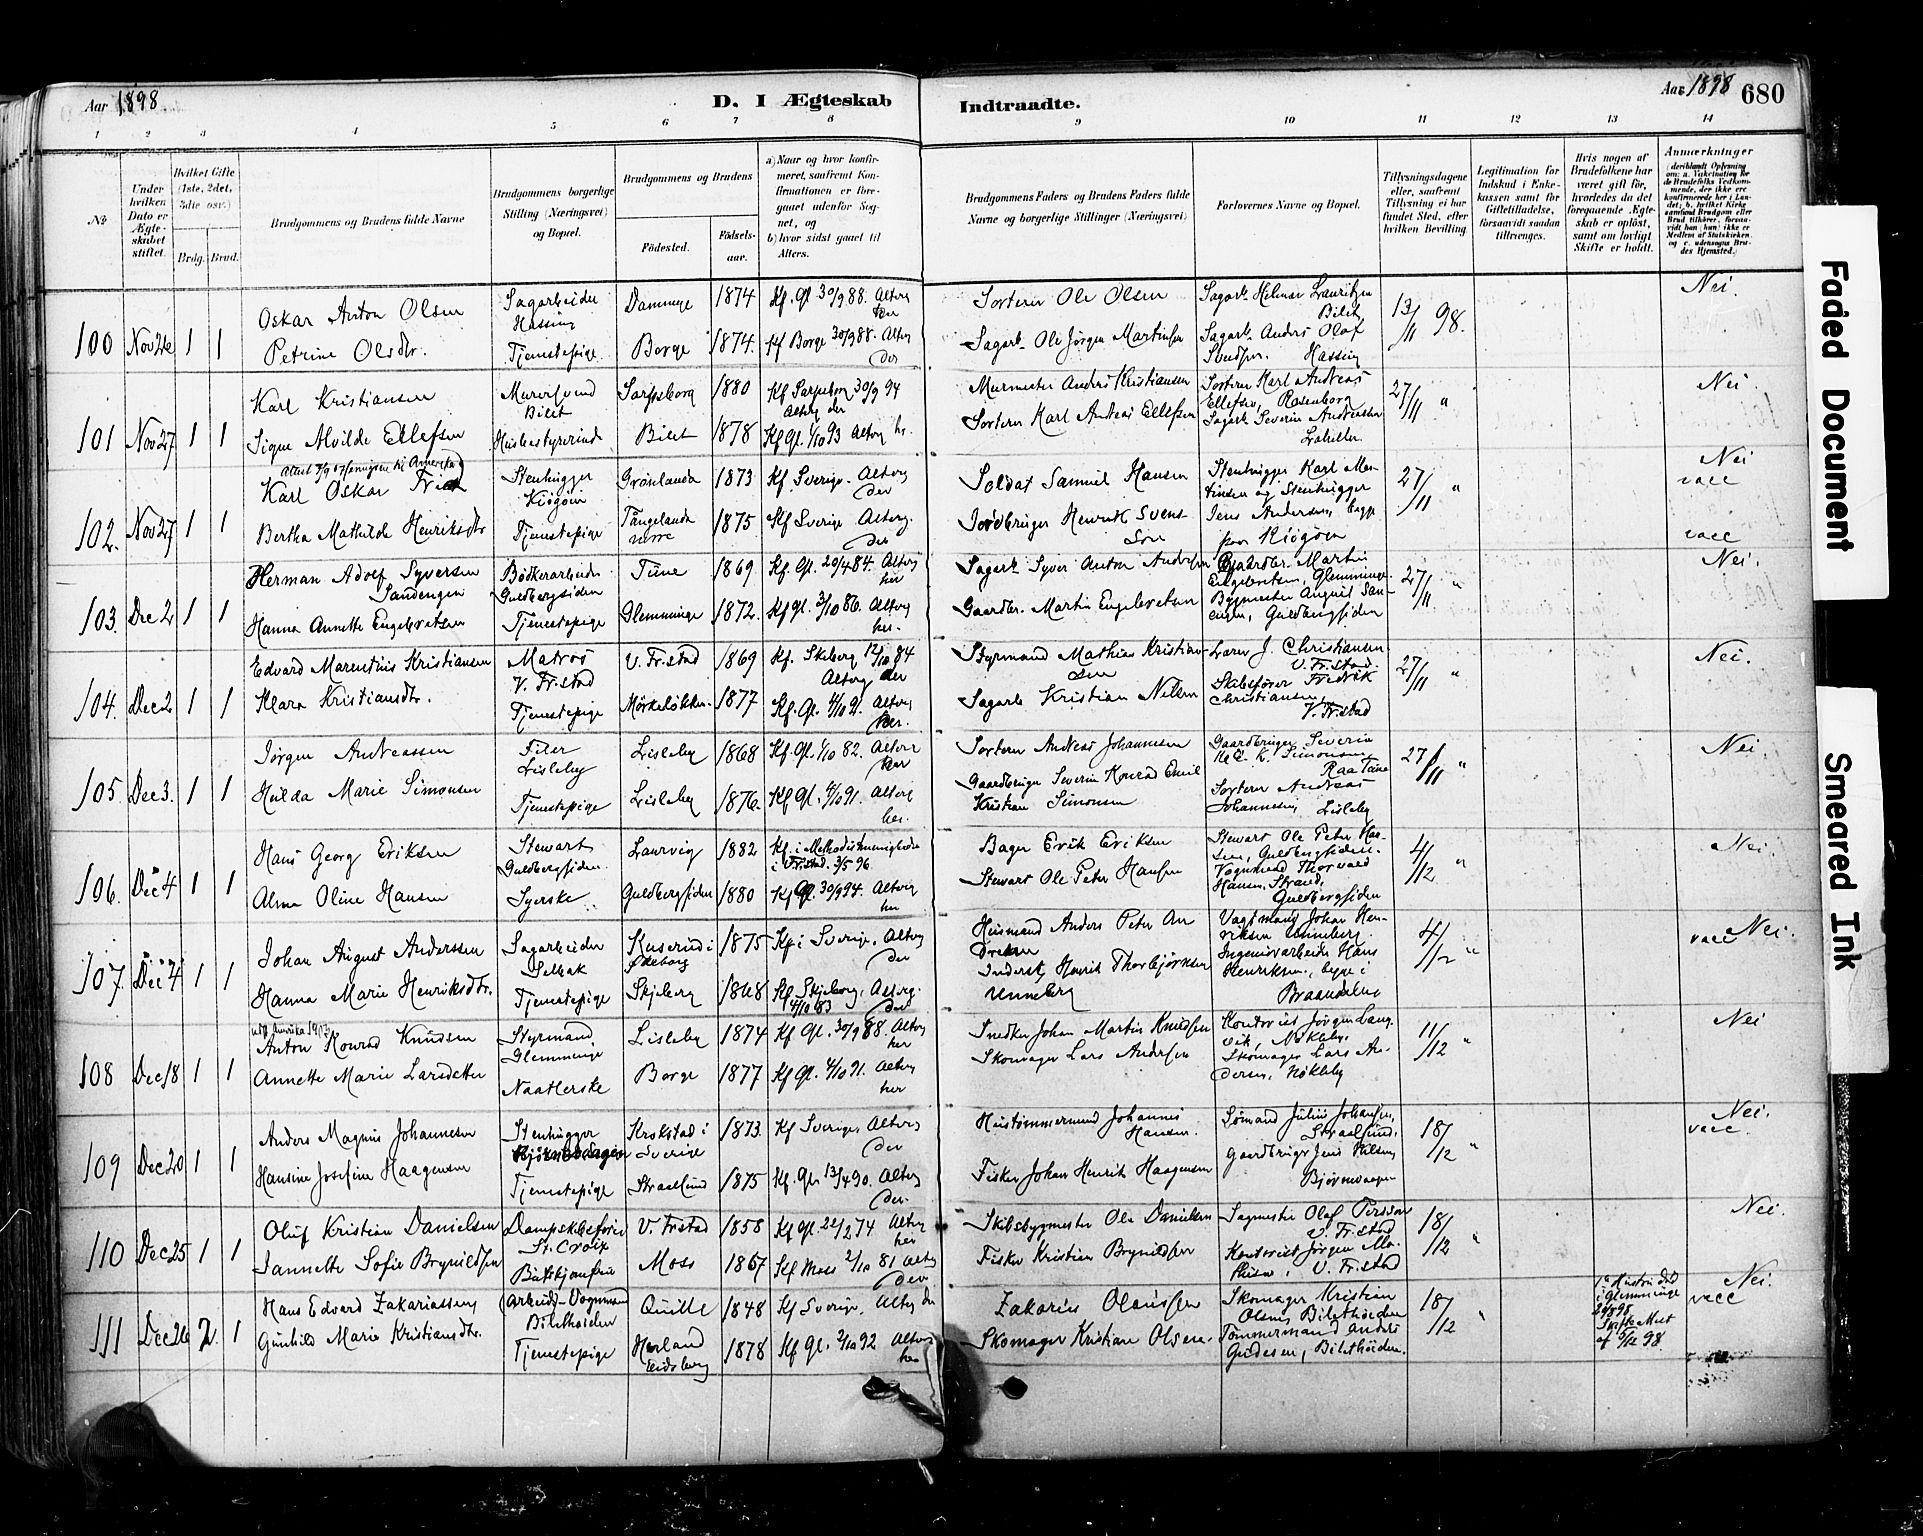 Aar 1898
D. I Ægteskab Indtraadte.
Aar 1898 680
1 2 3 4 5 6 7 8 9 10 11 12 13 14
No
Under hvilken Dato er Ægteskabet stiftet.
Hvilket Gifte (1ste, 2det, 3die osv.)
Brdg. Brud.
Brudgommens og Brudens fulde Navne
Brudgommens borgerlige Stilling (Næringsvei) og Bopæl.
Brudgommens og Brudens
Fødested. Fødselsaar.
a) Naar og hvor konfirmeret, samt om Konfirmationen er foregaaet udenfor Sognet, og
b) hvor sidst gaaet til Alters.
Brudgommens Faders og Brudens Faders fulde Navne og borgerlige Stillinger (Næringsvei)
Forlovernes Navne og Bopæl.
Tillysningsdagene eller, saafremt Tillysning ei har fundet Sted, efter hvilken Bevilling.
Legitimation for Indskud i Enkekassen samt for Giftetilladelse, forsaavidt saadan tiltrænges.
Hvis nogen af Brudefolkene har været gift før, hvorledes da det foregaaende Ægteskab er opløst, samt om lovligt Skifte er holdt.
Anmærkninger
100 Nov 26 1 1
Oskar Anton Olsen Sagarbeider Hassing Dammyr 1874 Kf. Gl. 30/9 88. Alterg her
Petrine Olsdtr. Tjenestepige Borge 1874. Kf Borge 30/9 88. Alterg der
Sorterer Ole Olsen
Sagarb. Ole Jörgen Martinsen
Sagarb. Helmer Lauritzen Bilet
Sagarb. Anders Olaf Svendsen. Hassing
13/11 98. Nei.
101 Nov 27 1 1
Karl Kristiansen Murersvend Bilet Sarpsborg 1880 Kf Sarpsborg 30/9 94 Alterg der
Signe Alvilde Ellefsen Husbestyrerinde Bilet 1878 Kf Gl. 1/10 93 Alterg her.
Murmester Anders Kristiansen
Sorterer Karl Andreas Ellefsen
Sorterer Karl Andreas Ellefsen, Rosenborg
Sagarb Severin Andersen
27/11 " Nei.
102. Nov 27 1 1
Karl Oskar Stenhugger Kiögöen 1873 Kf. Sverige. Alterg der
Bertha Mathilde Henriksdtr Tjenestepige 1875 Kf Sverige. Alterg. der
Soldat Samuel Hansen
Jordbruger Henrik Svensson
Stenhugger Karl Martinsen og Stenhugger Jens Andersen, begge paa Kiögöen
27/11 " Nei vacc vacc
103. Dec 2 1 1
Herman Adolf Syversen Sandengen Bödkerarbeider Guldbergsiden Tune 1869 Kf. Gl. 20/4 84. Alterg her
Hanna Annette Engebretsen Tjenestepige Glemminge 1872. Kf Gl. 3/10 86. Alterg her.
Sagarb Syver Anton Andersen
Gaardbr. Martin Engebretsen
Gaardbr. Martin Engebretsen, Glemminge
Bygmester August Sandengen, Guldbergsiden
27/11 " Nei.
104. Dec 2 1 1
Edvard Marentius Kristiansen Matros V. Fr.stad V. Fr.stad 1869 Kf. Skeberg 12/10 84 Alterg der
Klara Kristiansdtr. Tjenestepige 1877 Kf. Gl. 4/10 91. Alterg her.
Styrmand Mathias Kristiansen
Sagarb Kristian Nilsen
Lars J. Christiansen V. Fr.stad.
Skibsfører Fredrik Christiansen, V. Fr.stad
27/11 " Nei.
105. Dec 3. 1 1
Jörgen Andreassen Filer Lisleby Lisleby 1868 Kf. Gl. 1/10 82. Alterg her
Hulda Marie Simonsen Tjenestepige Lisleby 1876. Kf Gl. 4/10 91. Alterg her.
Sorterer Andreas Johannesen
Gaardbruger Severin Konrad Emil Kristian Simonsen
Gaardbruger Severin K. E. K. Simonsen Raa Tune
Sorterer Andreas Johannesen, Lisleby
27/11 " Nei
106. Dec 4 1 1
Hans Georg Eriksen Stewart Guldbergsiden. Laurvig 1882 Kf. i Methodistmenigheden i Fr.stad. 3/5 96
Alma Oline Hansen Syerske Guldbergsiden 1880 Kf Gl. 30/9 94. Alterg her
Bager Erik Eriksen
Stewart Ole Peter Hansen
Stewart Ole Peter Hansen, Guldbergsiden.
Vognmand Thorvald Hansen, Strand, Guldbergsiden
4/12 " Nei.
107. Dec 4 1 1
Johan August Anderssen Sagarbeider Selbak 1875 Kf. i Sverige. Alterg der
Hanna Marie Henriksdtr. Tjenestepige Skjeberg 1868 Kf Skjeberg, 4/10 83 Alterg. der
Husmand Anders Peter Andresen
Inderst, Henrik Thorbjörnsen Unneberg
Vagtmand Johan Henriksen Unneberg.
Ingeniörarbeider Hans Henriksen, begge i
4/12 " vacc Nei.
108 Dec 18 1 1
Anton Konrad Knudsen Styrmand Glemminge Lisleby 1874 Kf Gl. 30/9 88. Alterg her
Annette Marie Larsdatter Naatlerske Borge 1877 Kf Gl. 4/10 91. Alterg her
Snedker Johan Martin Knudsen
Skomager Lars Andersen
Kontorist Jörgen Langvik, Nökleby.
Skomager Lars Andersen, Nökleby
11/12 " Nei
109 Dec 20 1 1
Anders Magnus Johannesen Stenhugger Krokstad i Sverige 1873. Kf Sverige, Alterg der
Hansine Josefine Haagensen Tjenestepige Straalsund 1875 Kf. Gl. 13/4 90. Alterg der.
Hustömmermand Johannes Hansen.
Fisker Johan Henrik Haagensen
Sömand Julius Johansen, Straalsund,
Gaardbruger Jens Nilsen Björnevaagen
18/12 " Nei. vacc.
110 Dec 25 1 1
Oluf Kristian Danielsen Dampskibsfører St. Croix V. Frstad 1858 Kf Gl. 22/2 74 Alterg her
Jannette Sofie Brynildsen Moss 1867 Kf Moss 2/10 81 Alterg der
Skibsbygmester Ole Danielsen
Fisker Kristian Brynildsen
Sagmester Olaf Persson V. Fr.stad
Kontorist Jörgen V. Fr.stad
18/12 " Nei.
111 Dec 26 2. 1
Hans Edvard Zakariassen (Arbeids-Vognmand Bilethöiden Quille 1848 Kf Sverige. Alterg der
Gunhild Marie Kristiansdtr. Tjenestepige Eidsberg 1878 Kf Gl. 2/10 92 Alterg her
Zakarias
Skomager Kristian Olsen.
Skomager Kristian Olsen, Bilethöiden
Tömmermand Anders Bilethöiden.
18/12 " Nei. vacc
1e Hustru död i Glemminge
Faded Document
Smeared Ink